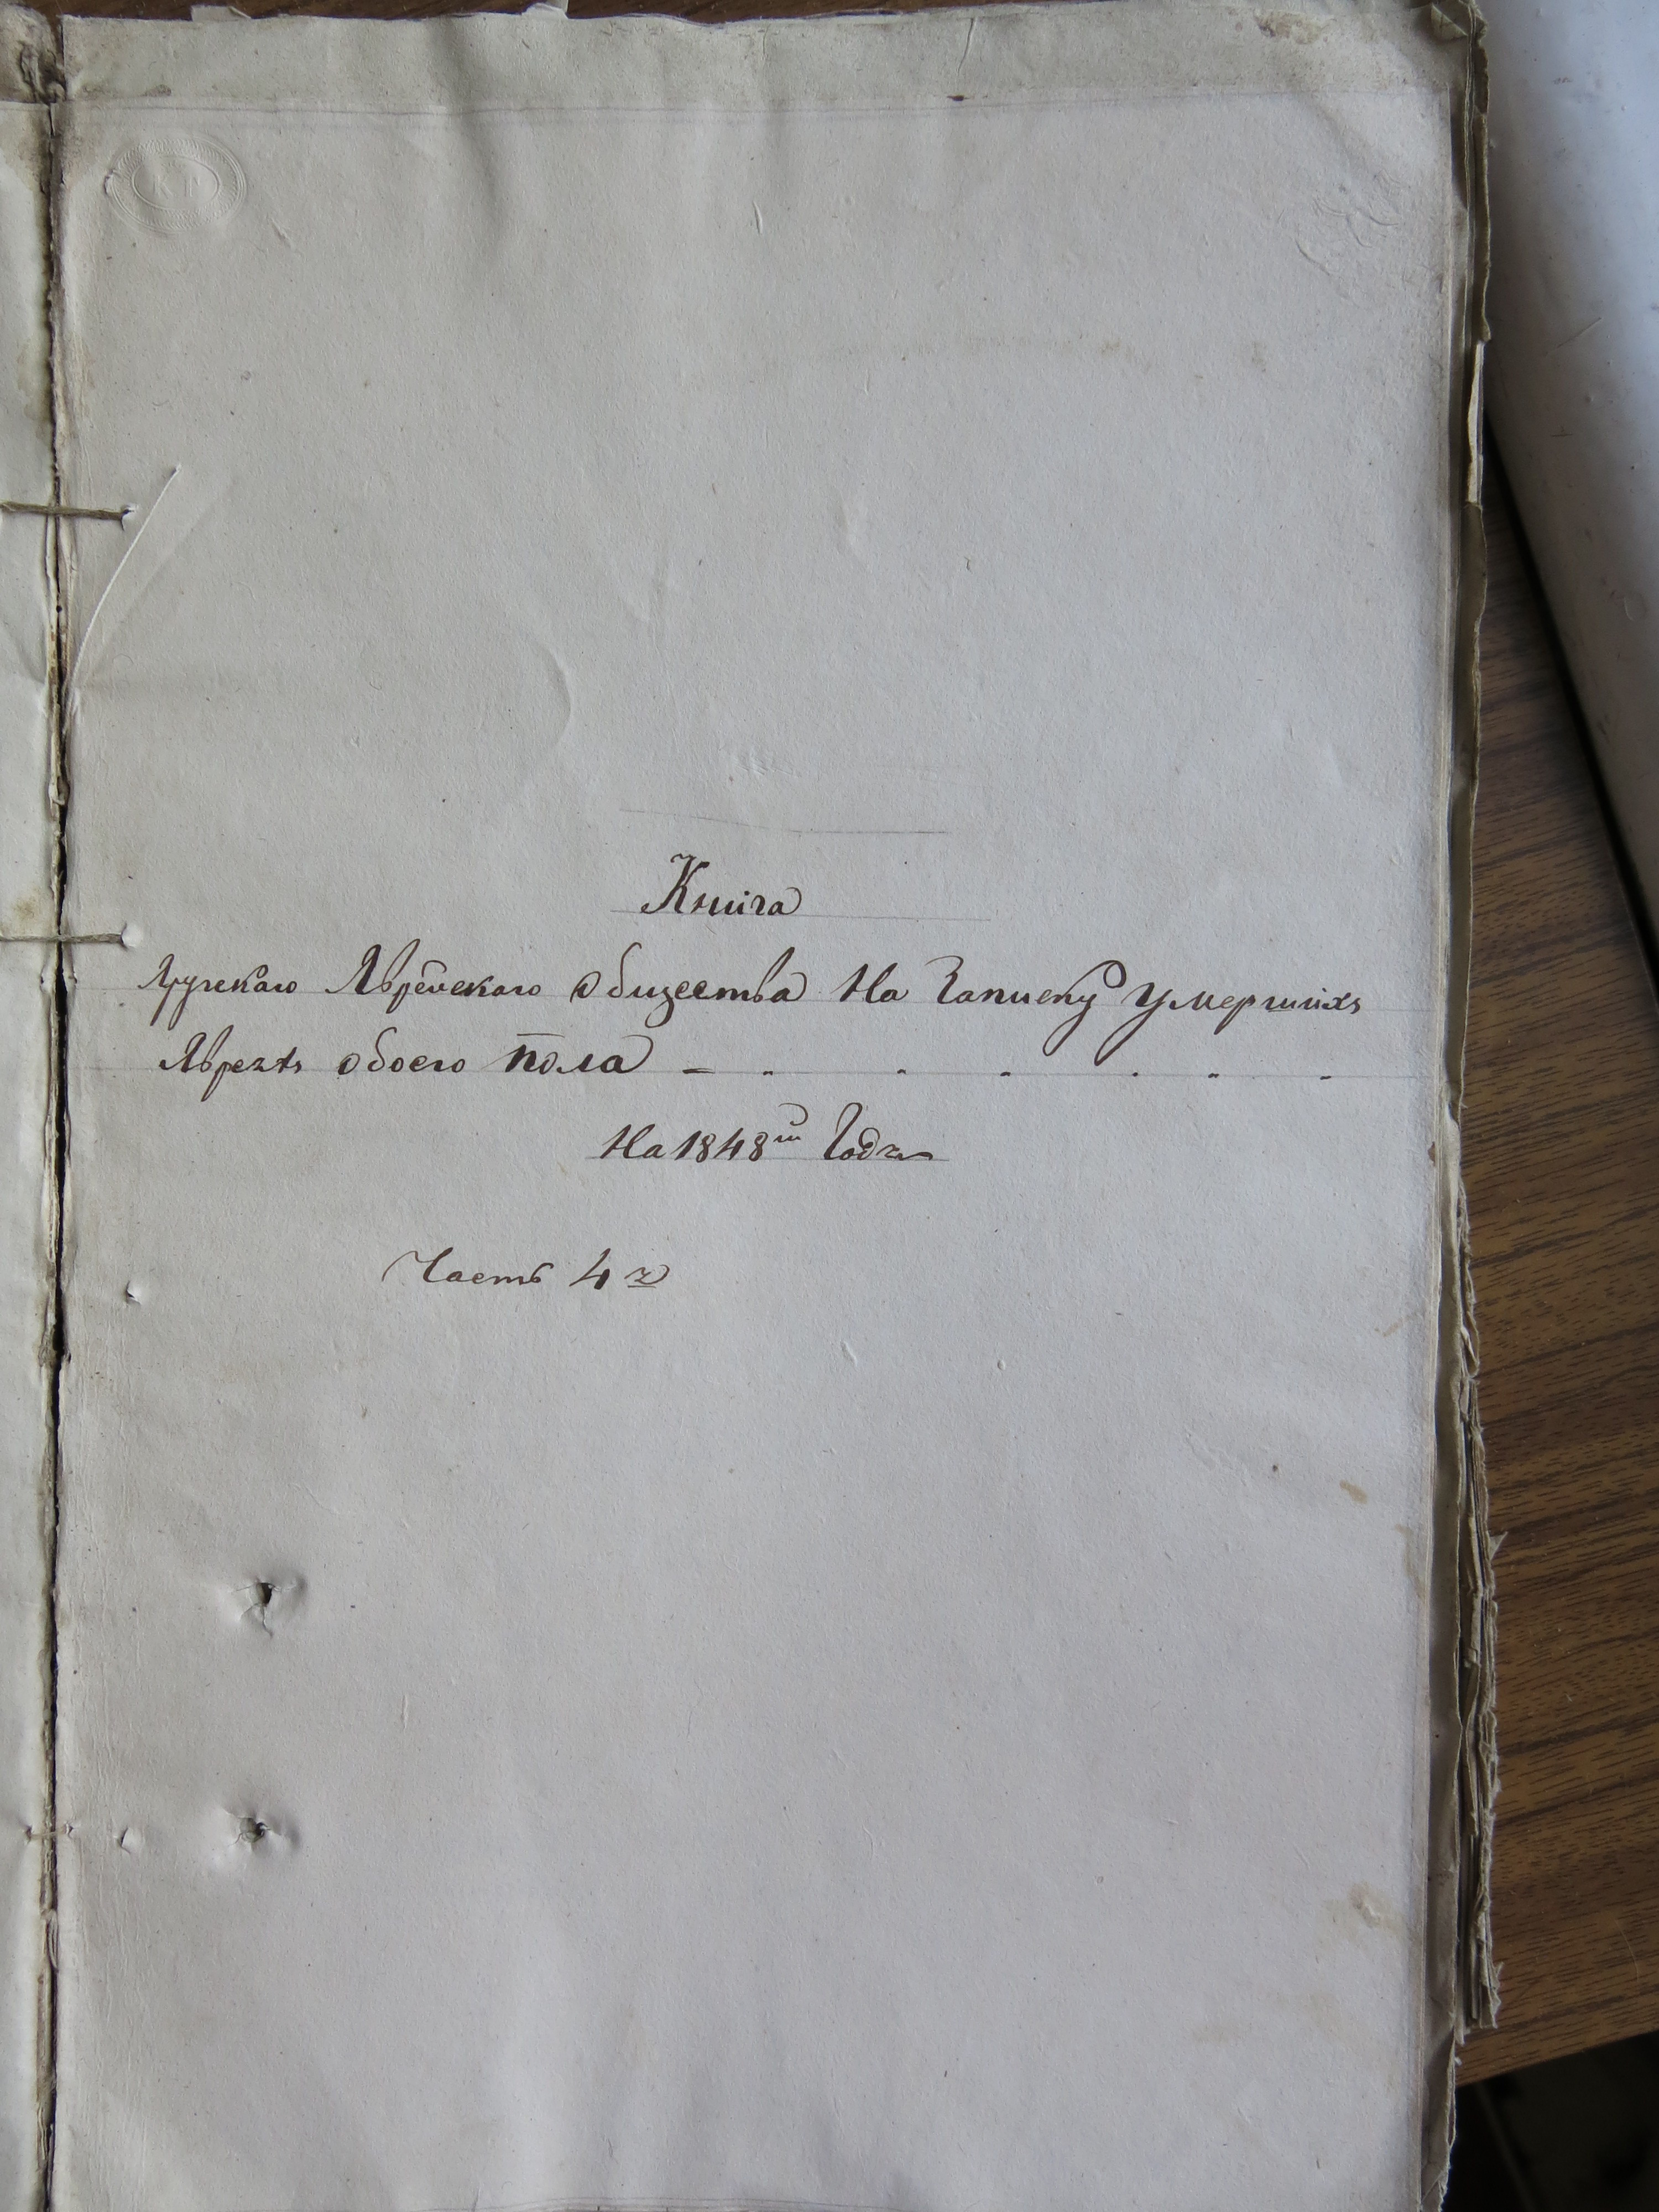 КГ
Книга
Луцкаго Еврейскаго общества На Запиську Умершихъ
Евреевъ обоего пола
На 1848й Годъ
Часть 4я